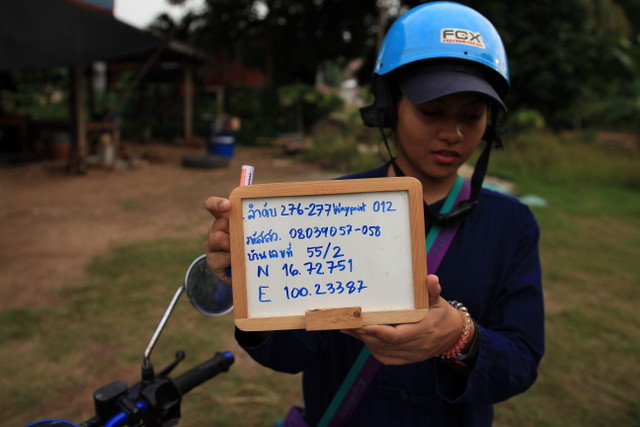 FOX
ลำดับ 276-277 Waypoint 012
รหัสสว. 08039057-058
บ้านเลขที่ 55/2
N 16.72751
E 100.23387